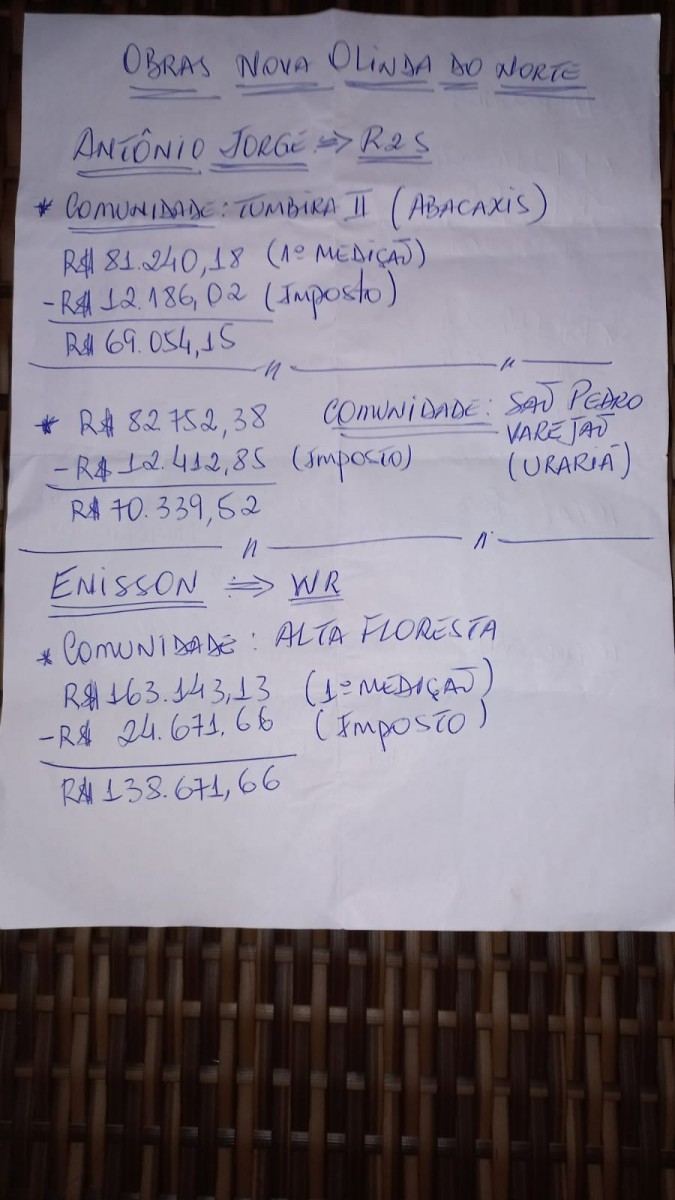 OBRAS NOVA OLINDA DO NORTE
ANTÔNIO JORGE => R2S
* COMUNIDADE: TUMBIRA II (ABACAXIS)
R$ 81.240,18 (1º MEDIÇÃO)
-R$ 12.186,02 (IMPOSTO)
R$ 69.054,15
* R$ 82.752,38 COMUNIDADE: SÃO PEDRO
VAREJÃO
-R$ 12.412,85 (IMPOSTO) (URARIÁ)
R$ 70.339,52
ENISSON => WR
* COMUNIDADE: ALTA FLORESTA
R$ 163.143,13 (1º MEDIÇÃO)
-R$ 24.671,66 (IMPOSTO)
R$ 138.671,66